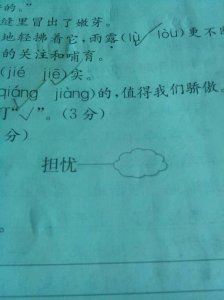 的。”
缝里冒出了嫩芽。
地轻拂着它，雨露(lù lòu)更不断
的关注和哺育。
(jié jiē)实。
qiáng jiàng)的，值得我们骄傲。
打“✓”。(3分)
分)
担忧